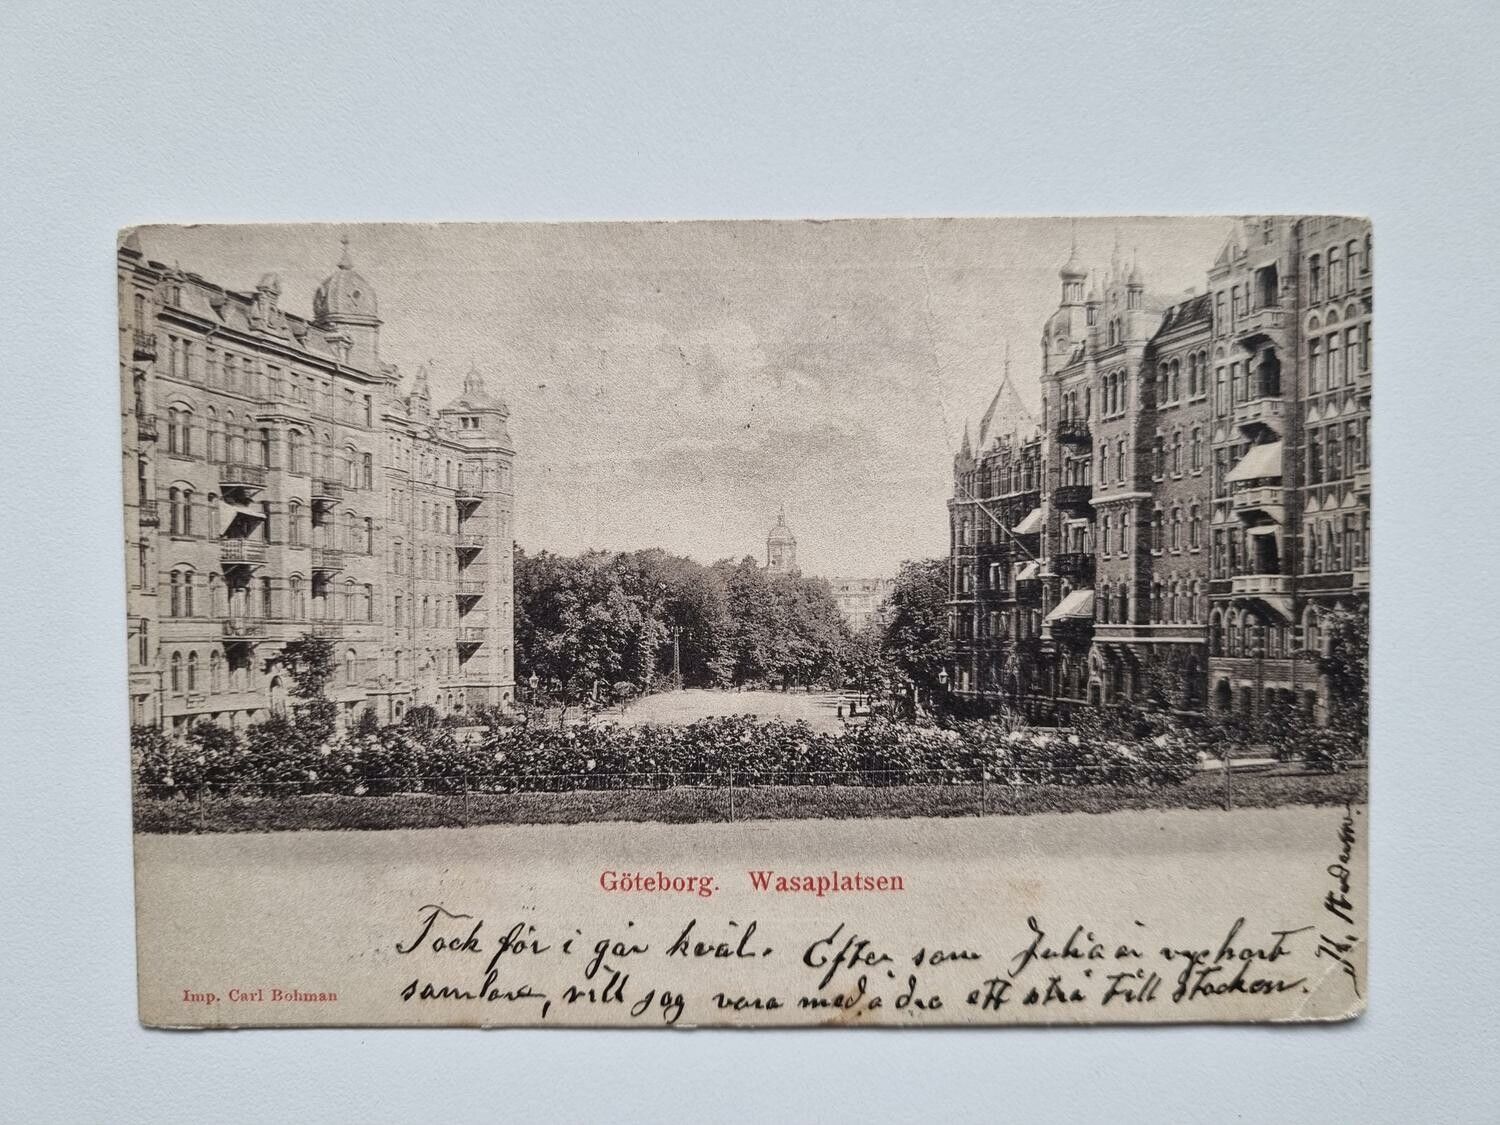 Göteborg. Wasaplatsen
Tack för i går kväl. Efter som Julia är vykort
samlare, vill jag vara med å dra ett strå till stacken.
Imp. Carl Bohman